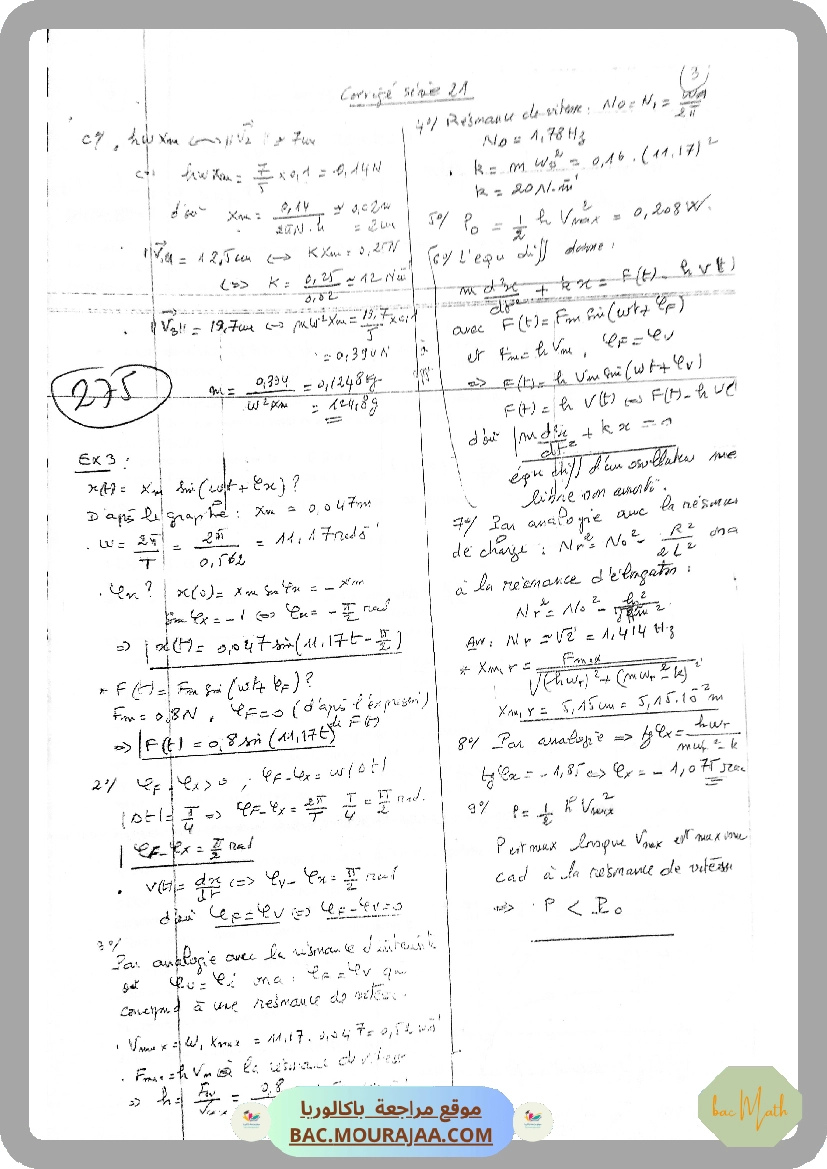 Corrigé série 21
(3)
c°/ . hw Xm ⟺ ||V₂|| = 7cm
⟺ hw Xm = 7/5 x 0,1 = 0,14N
d'où Xm = 0,14/(2πN.h) ≈ 0,02m
= 2cm
. ||V₁|| = 12,5cm ⟺ K Xm = 0,25N
⟺ K = 0,25/0,02 ≈ 12 N m⁻¹
. ||V₃|| = 19,7cm ⟺ mw²Xm = 19,7/5 x 0,1
= 0,394N
m = 0,394/(w²Xm) = 0,1248kg
= 124,8g
275
EX 3 :
x(t) = Xm sin(wt + φx) ?
D'après le graphe : Xm = 0,047m
. w = 2π/T = 2π/0,562 = 11,17 rad s⁻¹
. φx ? x(0) = Xm sin φx = - Xm
sin φx = -1 ⟺ φx = - π/2 rad
⇒ x(t) = 0,047 sin(11,17t - π/2)
* F(t) = Fm sin(wt + φF) ?
Fm = 0,8N , φF = 0 (d'après l'expression
de F(t))
⇒ F(t) = 0,8 sin(11,17t)
2°/ φF - φx > 0 , φF - φx = w|Δt|
|Δt| = T/4 ⇒ φF - φx = 2π/T . T/4 = π/2 rad.
φF - φx = π/2 rad
. v(t) = dx/dt ⟺ φv - φx = π/2 rad
d'où φF = φv ⟺ φF - φv = 0
3°/
Par analogie avec la résonance d'intensité
φu = φi on a : φF = φv qui
correspond à une résonance de vitesse.
. Vmax = w₁ Xmax = 11,17 . 0,047 = 0,52 m s⁻¹
. Fmax = h Vm à la résonance de vitesse
⇒ h = Fm/Vmax = 0,8
4°/ Résonance de vitesse : N₀ = N₁ = w₁/2π
N₀ = 1,78 Hz
. k = m w₀² = 0,16 . (11,17)²
k = 20 N.m⁻¹
5°/ P₀ = 1/2 h Vmax² = 0,208 W.
6°/ L'equ diff donne :
m d²x/dt² + k x = F(t) - h v(t)
avec F(t) = Fm sin(wt + φF)
et Fm = h Vm , φF = φv
⇒ F(t) = h Vm sin(wt + φv)
F(t) = h V(t) ⟺ F(t) - h v(
d'où m d²x/dt² + k x = 0
équ diff d'un oscillateur mé
libre non amorti.
7°/ Par analogie avec la résonan
de charge : Nr² = N₀² - R²/2L² on a
à la résonance d'élongation :
Nr² = N₀² -
AN : Nr = √2 = 1,414 Hz
* Xm,r = Fmax/√((hwr)² + (mwr² - k)²)
Xm,r = 5,15cm = 5,15.10⁻² m
8°/ Par analogie ⇒ tgφx = hwr/(mwr² - k)
tgφx = -1,85 ⟺ φx = - 1,075 rad
9°/ P = 1/2 h Vmax²
P est max lorsque Vmax est maxime
cad à la résonance de vitesse
⇒ P < P₀
موقع مراجعة باكالوريا
BAC.MOURAJAA.COM
bac Math